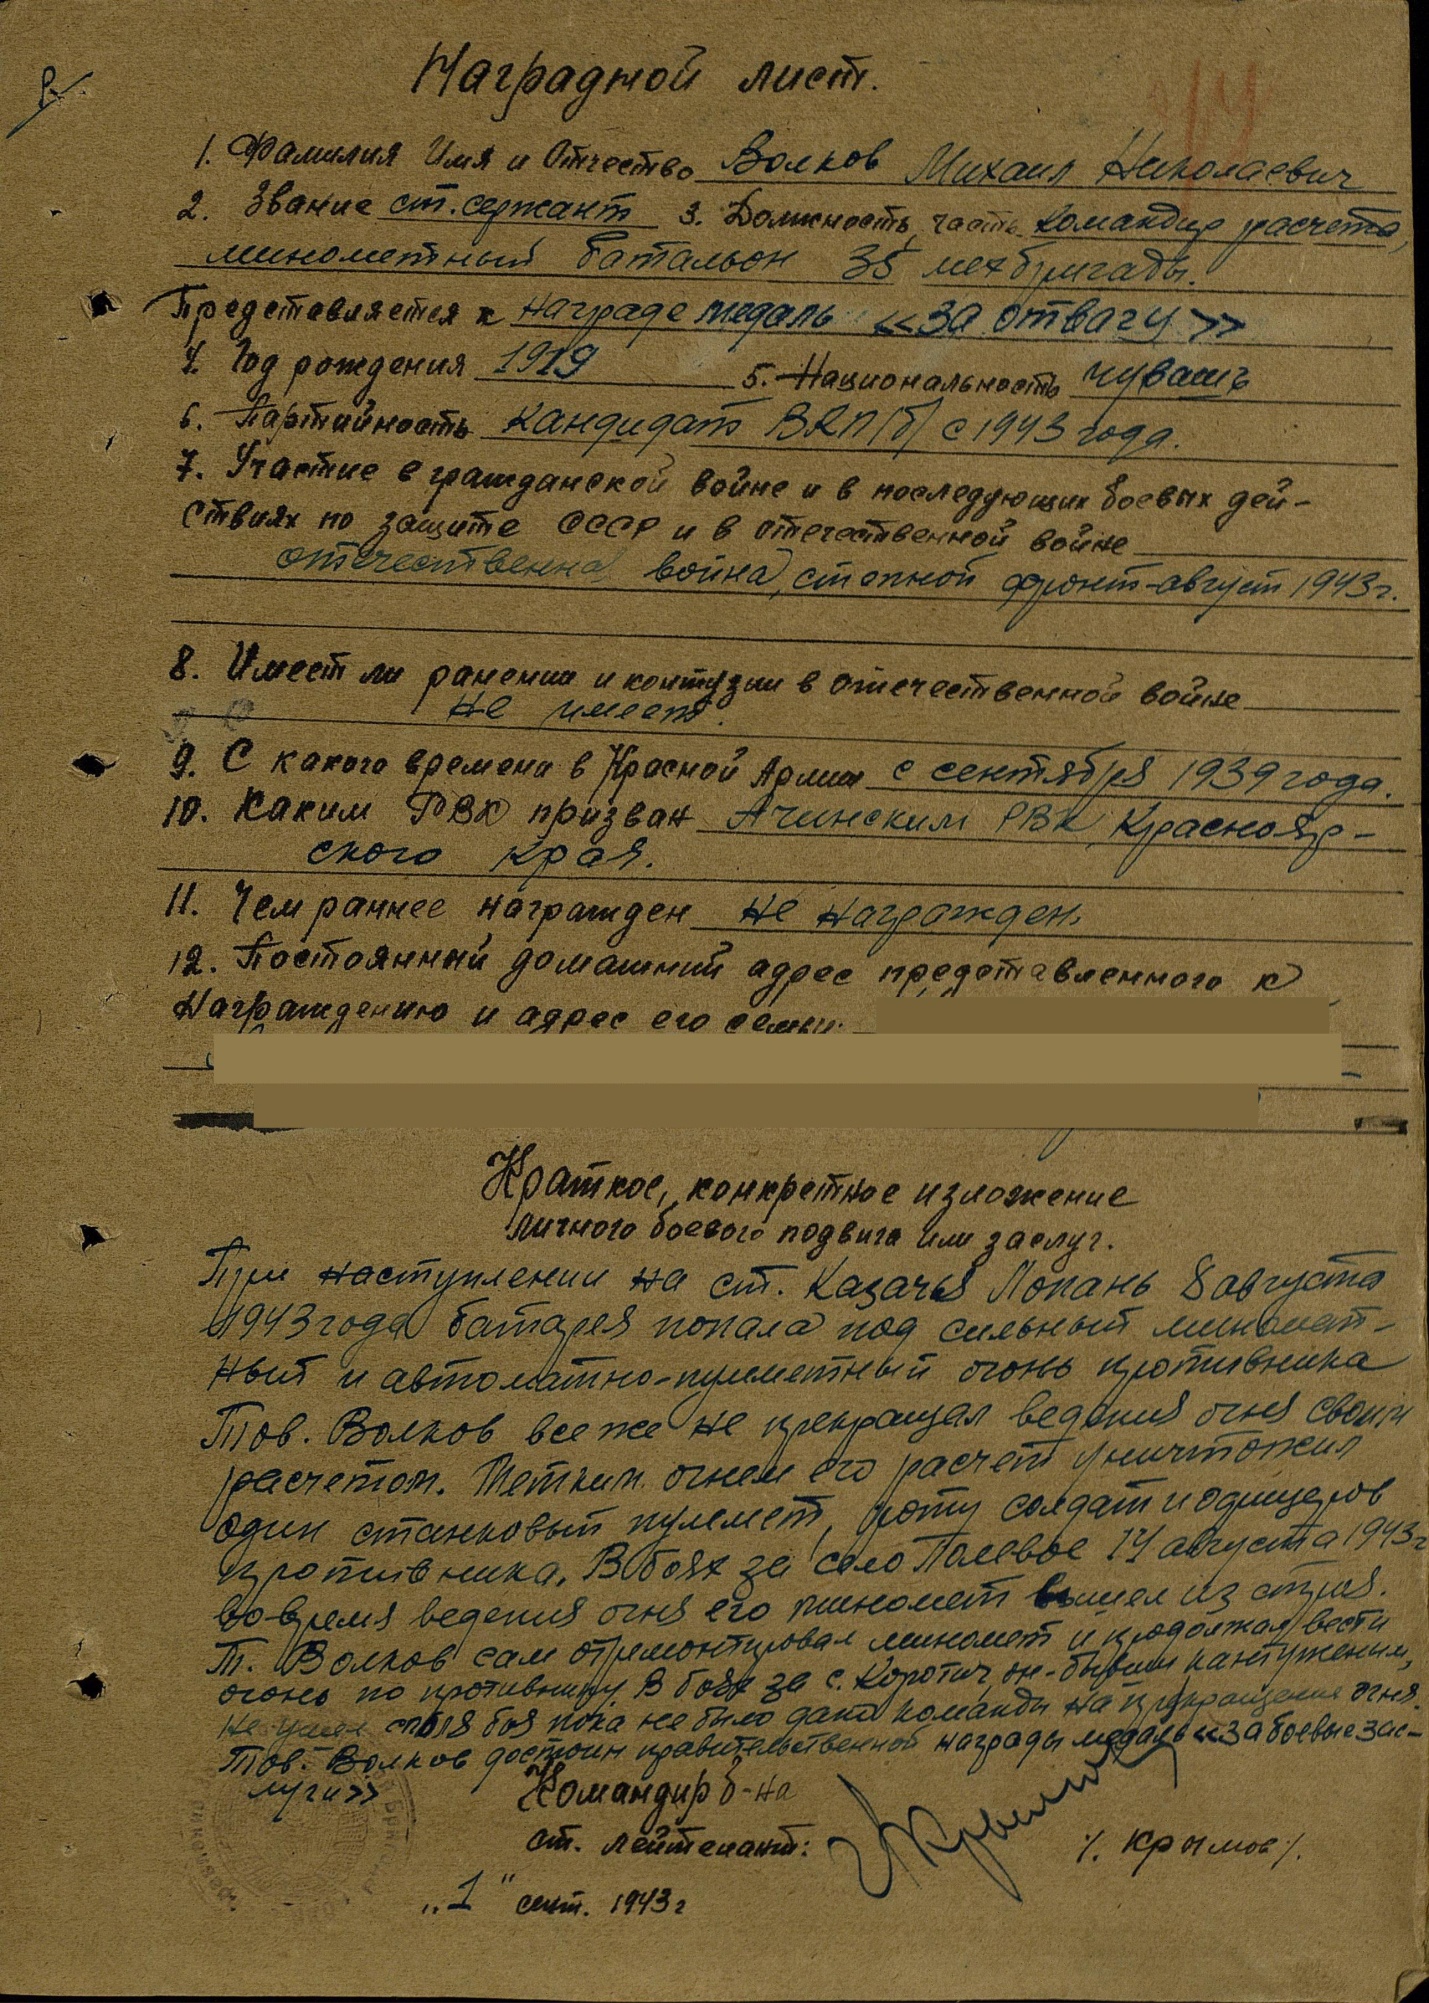 Наградной лист.
1. Фамилия Имя и Отчество Волков Михаил Николаевич
2. Звание ст. сержант 3. Должность, часть командир расчета,
минометный батальон 35 мехбригады.
Представляется к награде медаль «За отвагу»
4. Год рождения 1919 5. Национальность чувашъ
6. Партийность Кандидат ВКП/б/ с 1943 года.
7. Участие в гражданской войне и в последующих боевых дей-
ствиях по защите СССР и в отечественной войне
отечественна война, степной фронт-август 1943 г.
8. Имеет ли ранении и контузии в отечественной войне
Не имеет.
9. С какого времени в Красной Армии с сентября 1939 года.
10. Каким РВК призван Ачинским РВК Краснояр-
ского края.
11. Чем раннее награжден Не награжден.
12. Постоянный домашний адрес представленного к
Награждению и адрес его семьи.
Краткое, конкретное изложение
личного боевого подвига или заслуг.
При наступлении на ст. Казачья Лопань 8 августа
1943 года батарея попала под сильный миномат-
ный и автоматно-пулеметный огонь противника
Тов. Волков все же не прекращал ведения огня своим
расчетом. Метким огнем его расчет уничтожил
один станковый пулемет, роту солдат и офицеров
противника. В боях за село Полевое 14 августа 1943 г
во время ведения огня его миномет вышел из строя.
Т. Волков сам отремонтировал миномет и продолжал вести
огонь по противнику. В боях за с. Коротич, он-бывши кантуженым,
не ушел с поля боя пока не было дано команды на прекращение огня.
Тов. Волков достоин правительственной награды медаль «За боевые зас-
луги»
Командир б-на
ст. лейтенант: /. Крымов /.
„1" сент. 1943 г